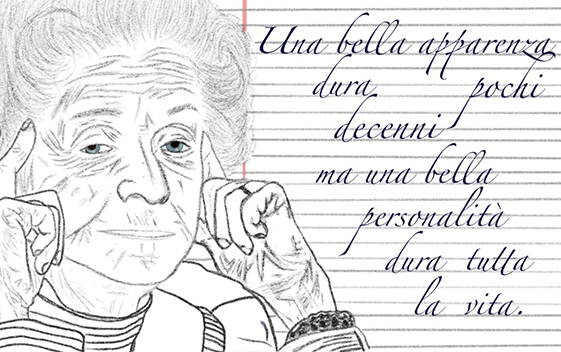 Una bella apparenza
dura pochi
decenni
ma una bella
personalità
dura tutta
la vita.